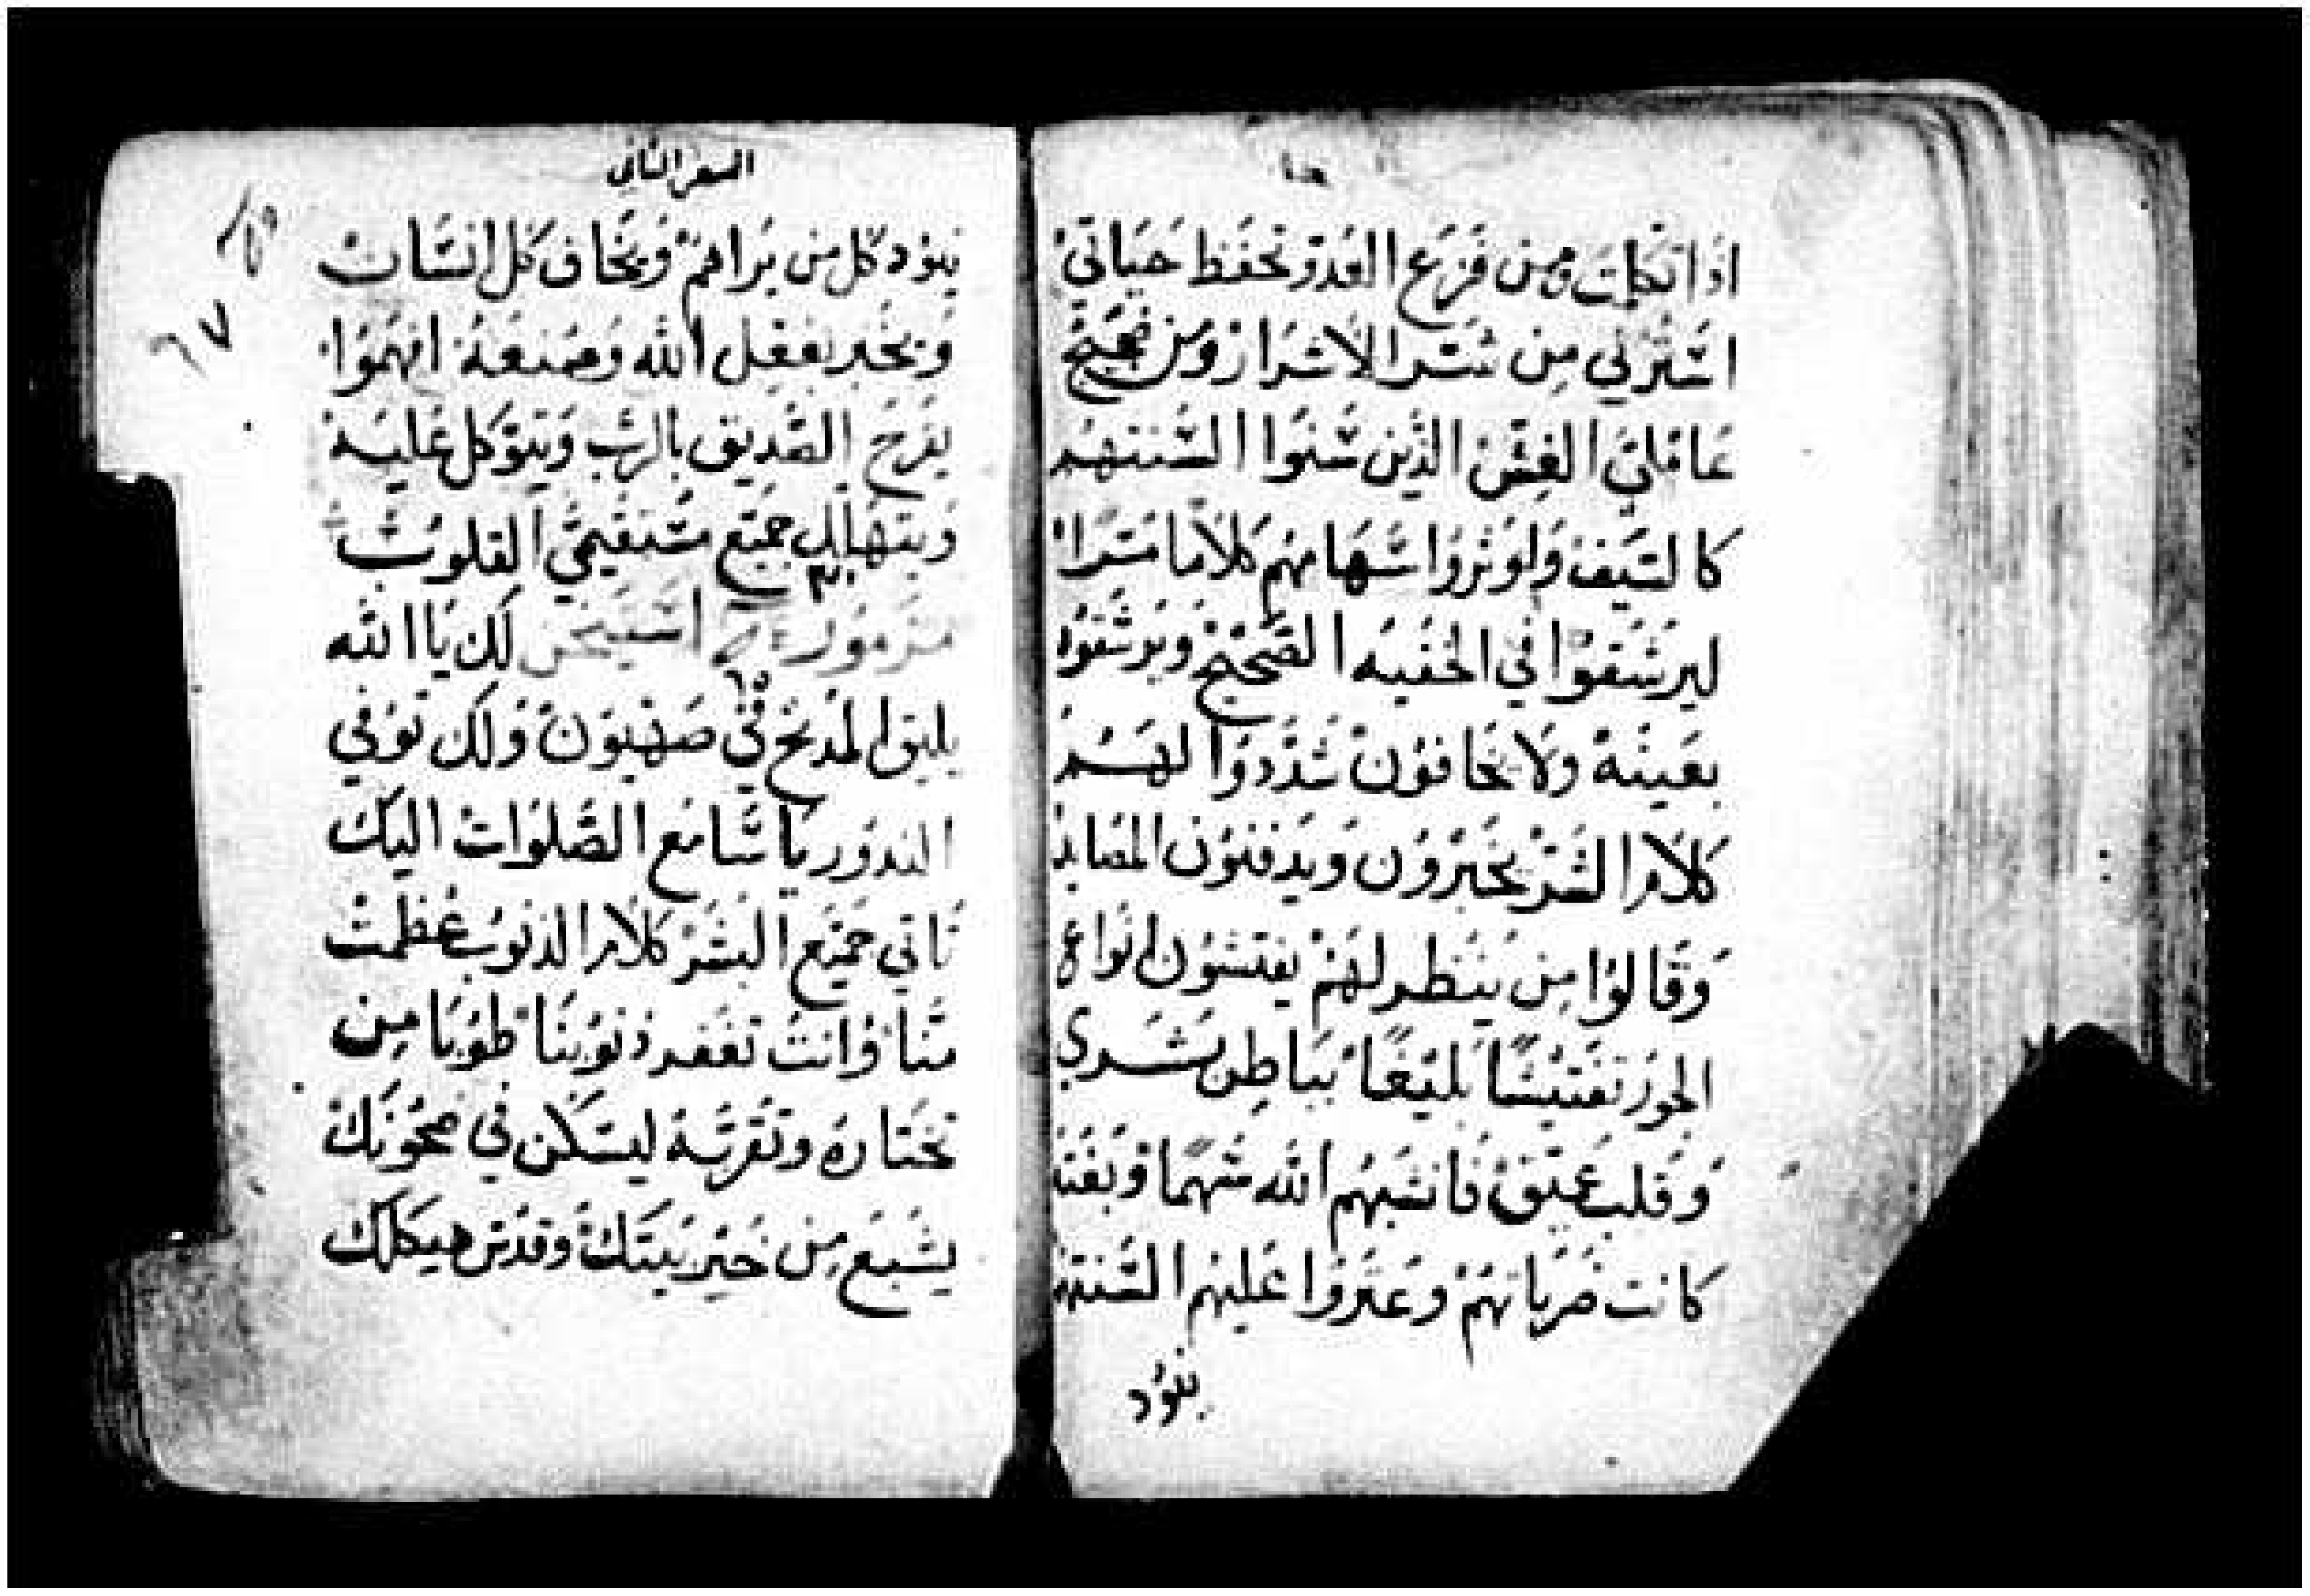 اذا تكلمت ومن فزع العدو تحفظ حياتي
استرني من شر الاشرار ومن ضجيج
عاملي الغش الذين سنوا السنتهم
كالسيف ولوتروا سهامهم كلاما مرا
ليرشقوا في الخفيه الصحيح ويرشقوه
بغتة ولا يخافون شددوا لهم
كلام الشر يخبرون ويدفنون المصايد
وقالوا من ينظر لهم يفتشون انواع
الجور تفتيشا بليغا بباطن بشري
وقلب عميق فانشبهم الله سهما وبغته
كانت ضرباتهم وعثروا عليهم السنتهم
ينود
السفر الثاني
ينود كل من يراهم ويخاف كل انسان
ويخبر بفعل الله وصنعه افهموا
يفرح الصديق بالرب ويتوكل عليه
ويتهلل جميع مستقيمي القلوب
مزمور استيحن لك يا الله
يليق المديح في صهيون ولك توفي
الندور يا سامع الصلوات اليك
تاتي جميع البشر كلام الذنوب عظمت
منا وانت تغفر ذنوبنا طوبا من
تختاره وتقربه ليسكن في صحونك
يشبع من خير بيتك وقدس هيكلك
٦٧